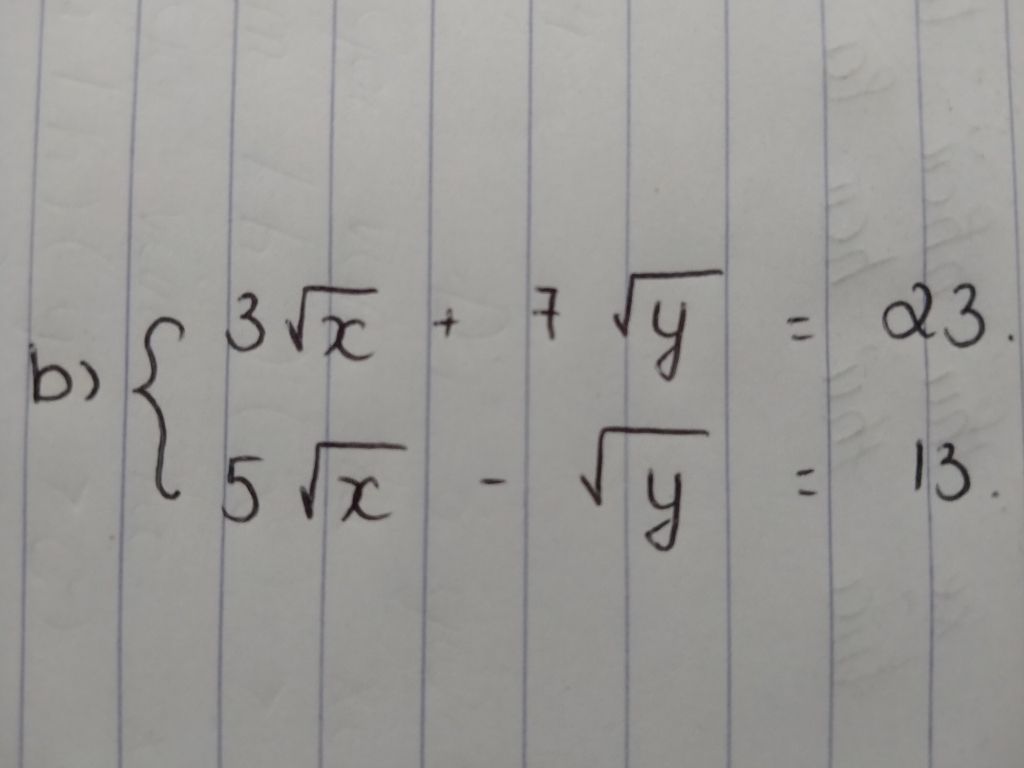 b) { 3√x + 7 √y = 23.
5 √x - √y = 13.